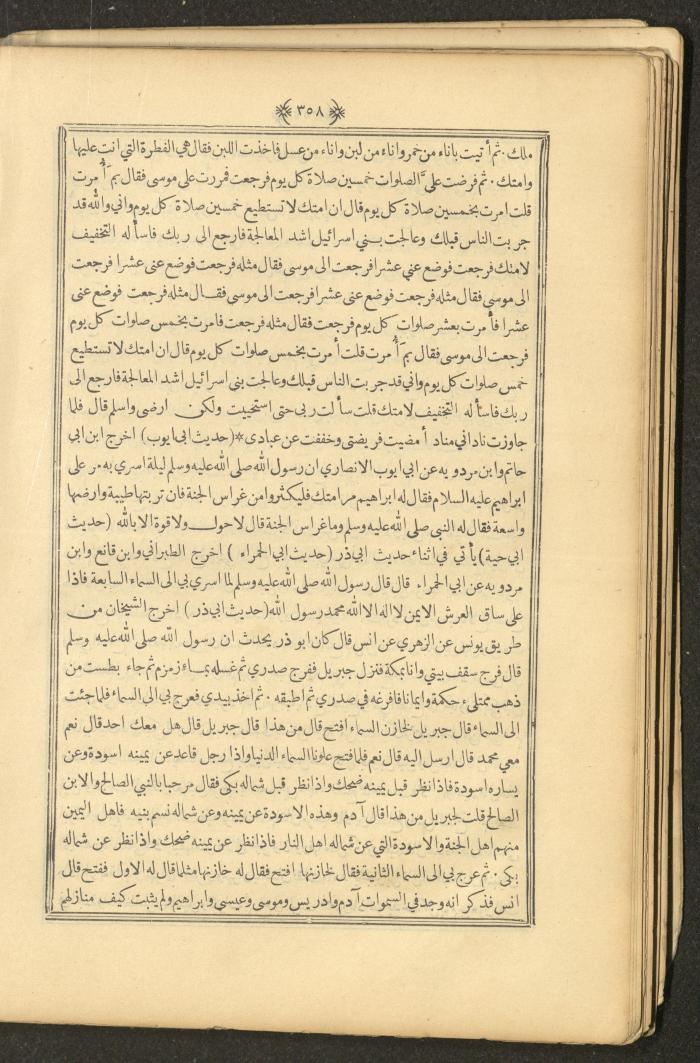 ٣٥٨
ملك . ثم أتيت باناء من خمر واناء من لبن واناء من عسل فاخذت اللبن فقال هي الفطرة التي انت عليها
وامتك . ثم فرضت عليَّ الصلوات خمسين صلاة كل يوم فرجعت فمررت على موسى فقال بمَ أُمرت
قلت امرت بخمسين صلاة كل يوم قال ان امتك لا تستطيع خمسين صلاة كل يوم واني والله قد
جربت الناس قبلك وعالجت بني اسرائيل اشد المعالجة فارجع الى ربك فاسأله التخفيف
لامتك فرجعت فوضع عني عشرا فرجعت الى موسى فقال مثله فرجعت فوضع عنى عشرا فرجعت
الى موسى فقال مثله فرجعت فوضع عنى عشرا فرجعت الى موسى فقال مثله فرجعت فوضع عنى
عشرا فأمرت بعشر صلوات كل يوم فرجعت فقال مثله فرجعت فامرت بخمس صلوات كل يوم
فرجعت الى موسى فقال بمَ أُمرت قلت أمرت بخمس صلوات كل يوم قال ان امتك لا تستطيع
خمس صلوات كل يوم واني قد جربت الناس قبلك وعالجت بنى اسرائيل اشد المعالجة فارجع الى
ربك فاسأله التخفيف لامتك قلت سألت ربى حتى استحييت ولكن ارضى واسلم قال فلما
جاوزت ناداني مناد أمضيت فريضتى وخففت عن عبادى*(حديث ابى ايوب) اخرج ابن ابي
حاتم وابن مردويه عن ابي ايوب الانصاري ان رسول الله صلى الله عليه وسلم ليلة اسري به مر على
ابراهيم عليه السلام فقال له ابراهيم مر امتك فليكثروا من غراس الجنة فان تربتها طيبة وارضها
واسعة فقال له النبي صلى الله عليه وسلم وما غراس الجنة قال لا حول ولا قوة الا بالله (حديث
ابي حية) يأتي في اثناء حديث ابي ذر (حديث ابي الحمراء ) اخرج الطبراني وابن قانع وابن
مردويه عن ابي الحمراء قال قال رسول الله صلى الله عليه وسلم لما اسري بي الى السماء السابعة فاذا
على ساق العرش الايمن لا اله الا الله محمد رسول الله (حديث ابي ذر) اخرج الشيخان من
طريق يونس عن الزهري عن انس قال كان ابو ذر يحدث ان رسول الله صلى الله عليه وسلم
قال فرج سقف بيتي وانا بمكة فنزل جبريل ففرج صدري ثم غسله بماء زمزم ثم جاء بطست من
ذهب ممتلىء حكمة وايمانا فافرغه في صدري ثم اطبقه . ثم اخذ بيدي فعرج بي الى السماء فلما جئت
الى السماء قال جبريل لخازن السماء افتح قال من هذا قال جبريل قال هل معك احد قال نعم
معي محمد قال ارسل اليه قال نعم فلما فتح علونا السماء الدنيا واذا رجل قاعد عن يمينه اسودة وعن
يساره اسودة فاذا نظر قبل يمينه ضحك واذا نظر قبل شماله بكى فقال مرحبا بالنبي الصالح والابن
الصالح قلت لجبريل من هذا قال آدم وهذه الاسودة عن يمينه وعن شماله نسم بنيه فاهل اليمين
منهم اهل الجنة والاسودة التي عن شماله اهل النار فاذا نظر عن يمينه ضحك واذا نظر عن شماله
بكى . ثم عرج بي الى السماء الثانية فقال لخازنها افتح فقال له خازنها مثل ما قال له الاول ففتح قال
انس فذكر انه وجد في السموات آدم وادريس وموسى وعيسى وابراهيم ولم يثبت كيف منازلهم